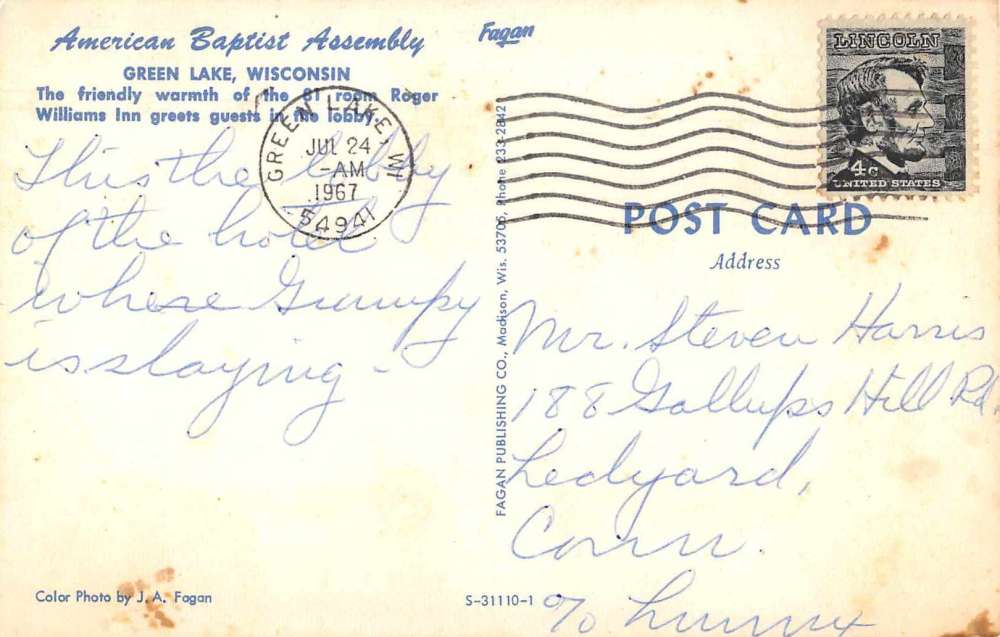 American Baptist Assembly
GREEN LAKE, WISCONSIN
The friendly warmth of the 81 room Roger
Williams Inn greets guests in the lobby.
This the lobby
of the hotel
where Grumpy
is staying -
Color Photo by J. A. Fagan
Fagan
FAGAN PUBLISHING CO., Madison, Wis. 53705, Phone 233-2842
S-31110-1
GREEN LAKE, WI
JUL 24
-AM
1967
54941
LINCOLN
4c
UNITED STATES
POST CARD
Address
Mr. Steven Harris
188 Gallups Hill Rd.
Ledyard,
Conn.
%